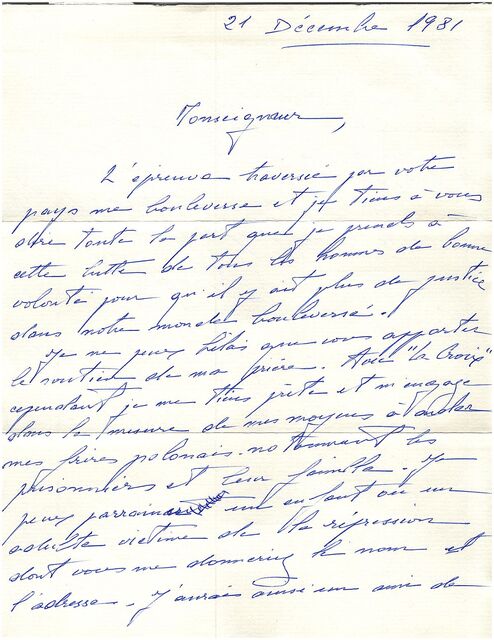 21 Décembre 1981
Monseigneur,
L'épreuve traversée par votre
pays me bouleverse et je tiens à vous
dire toute la part que je prends à
cette lutte de tous les hommes de bonne
volonté pour qu'il y ait plus de justice
dans notre monde bouleversé.
Je ne peux hélas que vous apporter
le soutien de ma prière. Avec "la Croix"
cependant je me tiens prête et m'engage
dans la mesure de mes moyens à aider
mes frères polonais notamment les
prisonniers et leur famille. Je
peux parrainer un enfant ou un
adulte victime de la répression
dont vous me donneriez le nom et
l'adresse. J'aurais ainsi un ami de